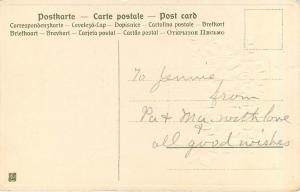 Postkarte - Carte postale - Post card
Correspondenzkarte - Levelező-Lap - Dopisnice - Cartolina postale - Brefkort
Briefkaart - Brevkort - Cartes postal - Cartão postal - Открытое Письмо
To Jennie
from
Pa & Ma. with love
&
all good wishes